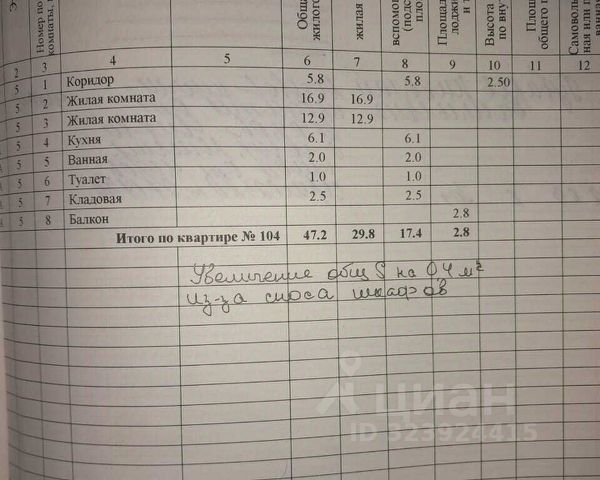 Номер по
комнаты,
Общ
жилого
жилая
вспомо
(подс
пло
Площад
лоджи
и т
Высота
по вну
Площ
общего п
Самоволь
ная или п
ванная
2 3 4 5 6 7 8 9 10 11 12
5 1 Коридор 5.8 5.8 2.50
5 2 Жилая комната 16.9 16.9
5 3 Жилая комната 12.9 12.9
5 4 Кухня 6.1 6.1
5 5 Ванная 2.0 2.0
5 6 Туалет 1.0 1.0
5 7 Кладовая 2.5 2.5
5 8 Балкон 2.8
Итого по квартире № 104 47.2 29.8 17.4 2.8
Увеличение общ S на 0,4 м²
из-за сноса шкафов
циан
ID 323924415